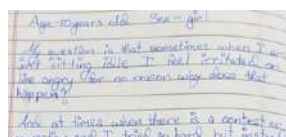 Age-10years old Sex - girl
My question is that sometimes when I a-
just sitting idle I feel irritated or
like angry for no reason why does that
happen?
And at times when there is a contest or
I tried so hard but